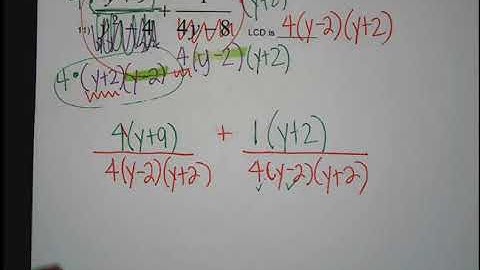 4y-8 LCD is 4(y-2)(y+2)
4•(y+2)(y-2) 4(y-2)(y+2)
4(y+9) + 1(y+2)
4(y-2)(y+2) 4(y-2)(y+2)